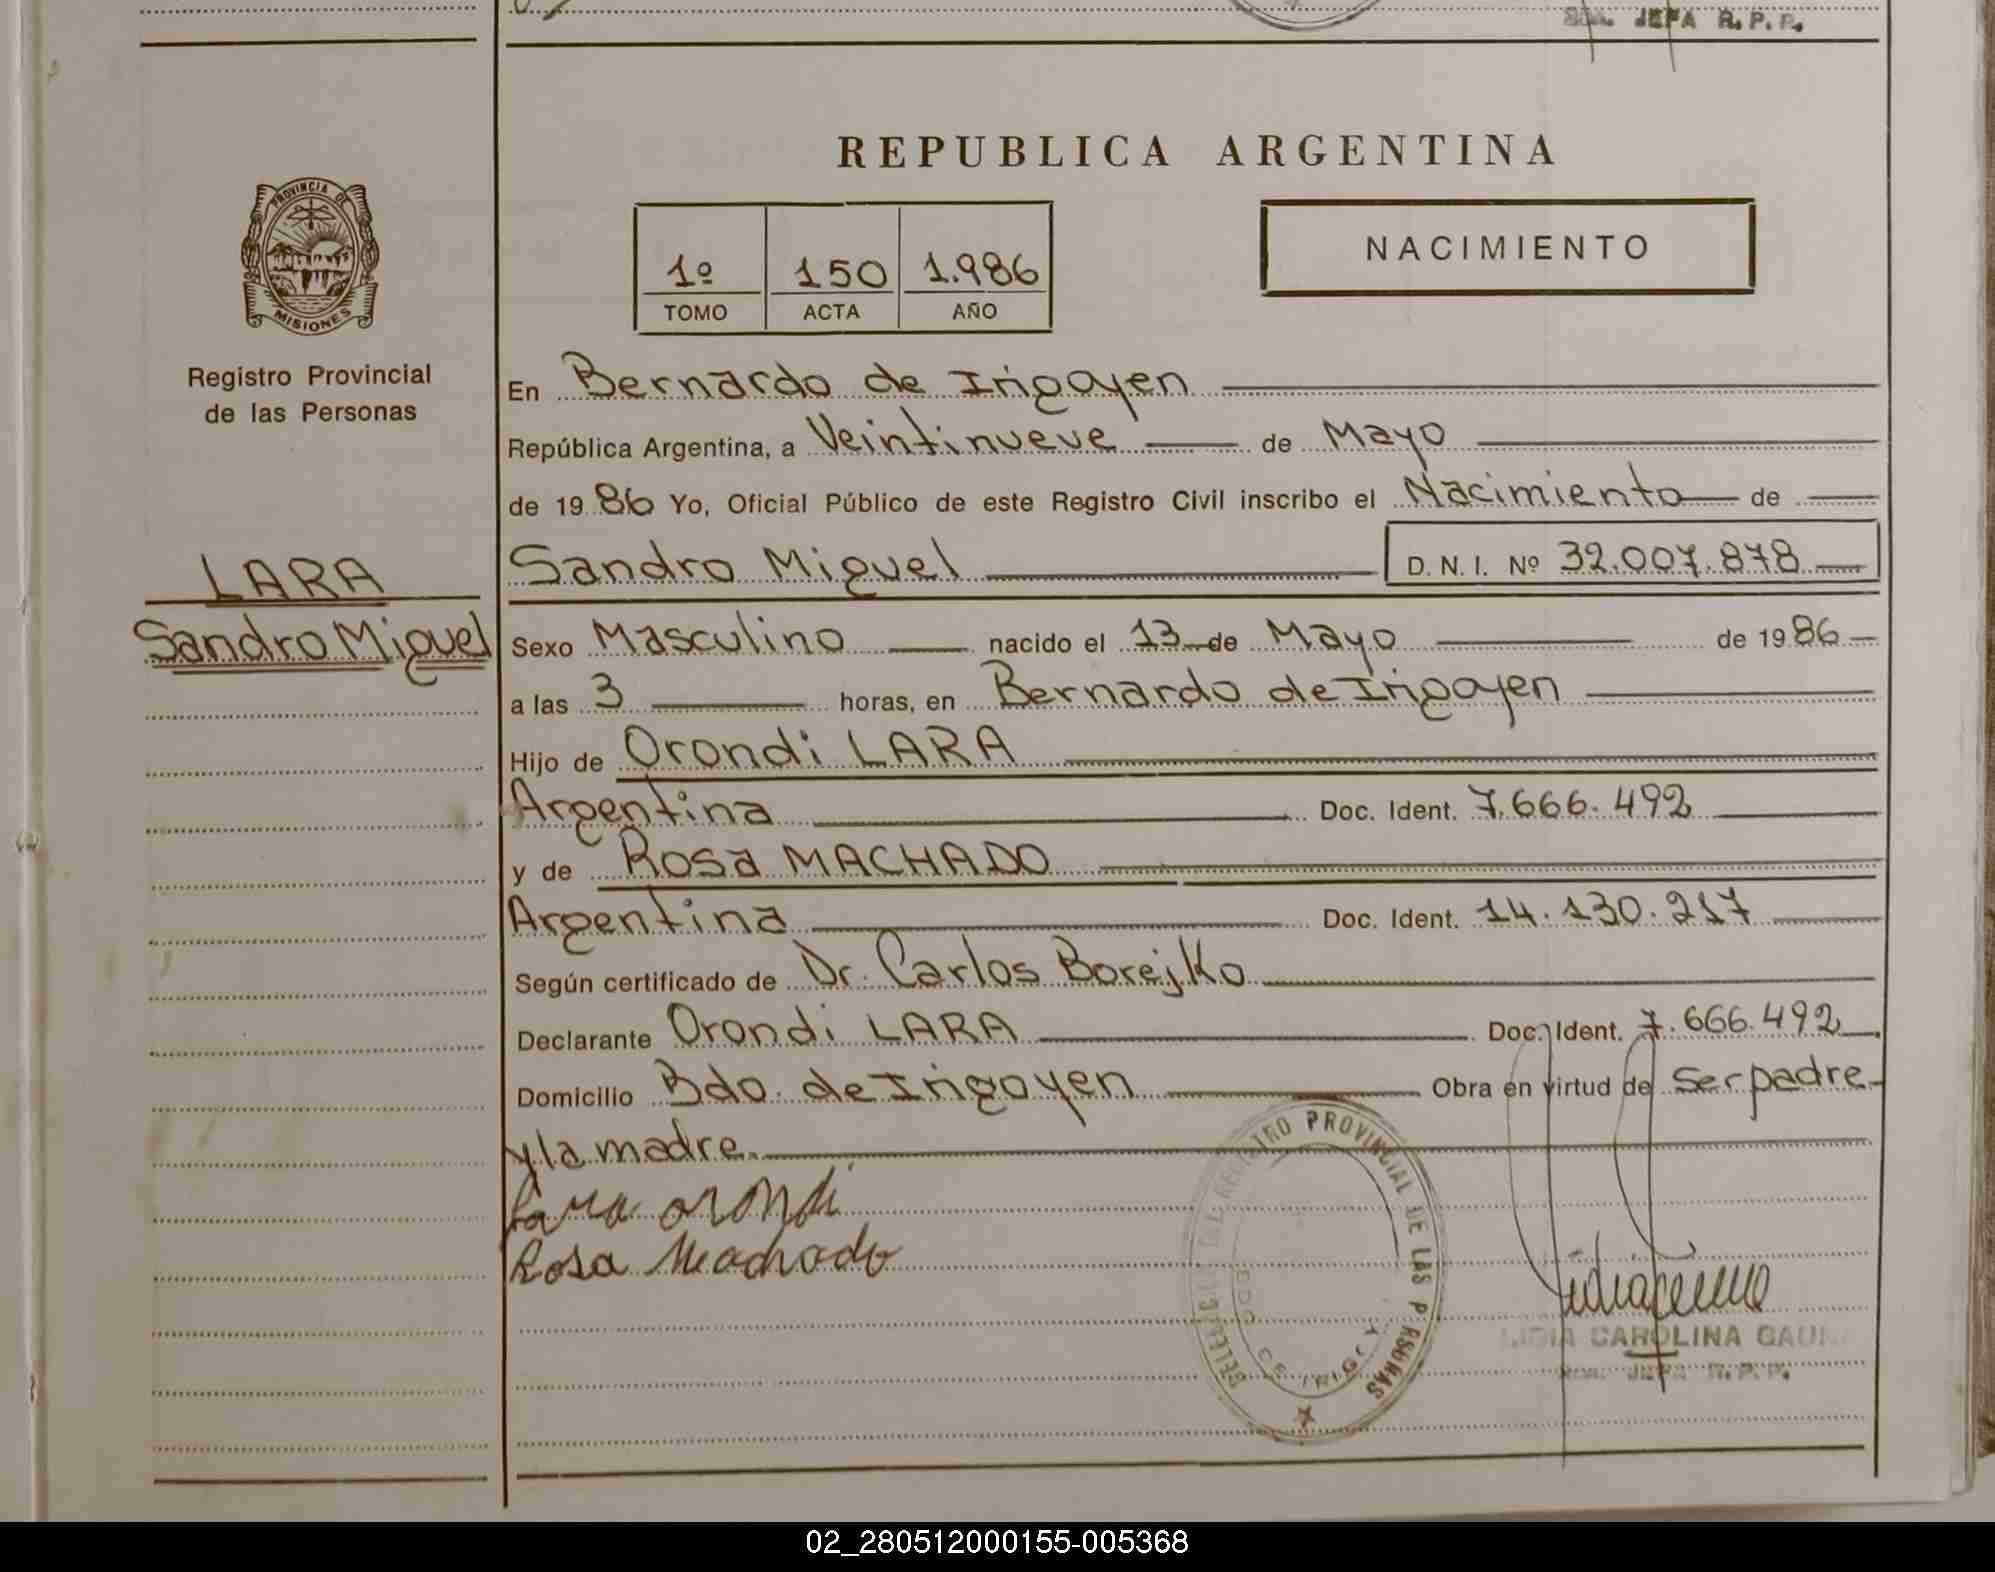 JEFA R. P. P.
PROVINCIA DE
MISIONES
Registro Provincial
de las Personas
LARA
Sandro Miguel
REPUBLICA ARGENTINA
NACIMIENTO
1º 150 1.986
TOMO ACTA AÑO
En Bernardo de Irigoyen
República Argentina, a Veintinueve de Mayo
de 1986 Yo, Oficial Público de este Registro Civil inscribo el Nacimiento de
Sandro Miguel D. N. I. Nº 32.007.878
Sexo Masculino nacido el 13 de Mayo de 1986
a las 3 horas, en Bernardo de Irigoyen
Hijo de Orondi LARA
Argentina Doc. Ident. 7.666.492
y de Rosa MACHADO
Argentina Doc. Ident. 14.130.217
Según certificado de Dr. Carlos Borejko
Declarante Orondi LARA Doc. Ident. 7.666.492
Domicilio Bdo. de Irigoyen Obra en virtud de ser padre
y la madre.
Lara orondi
Rosa Machado
REGISTRO PROVINCIAL DE LAS P RSONAS
LIDIA CAROLINA
JEFA R. P. P.
02_280512000155-005368